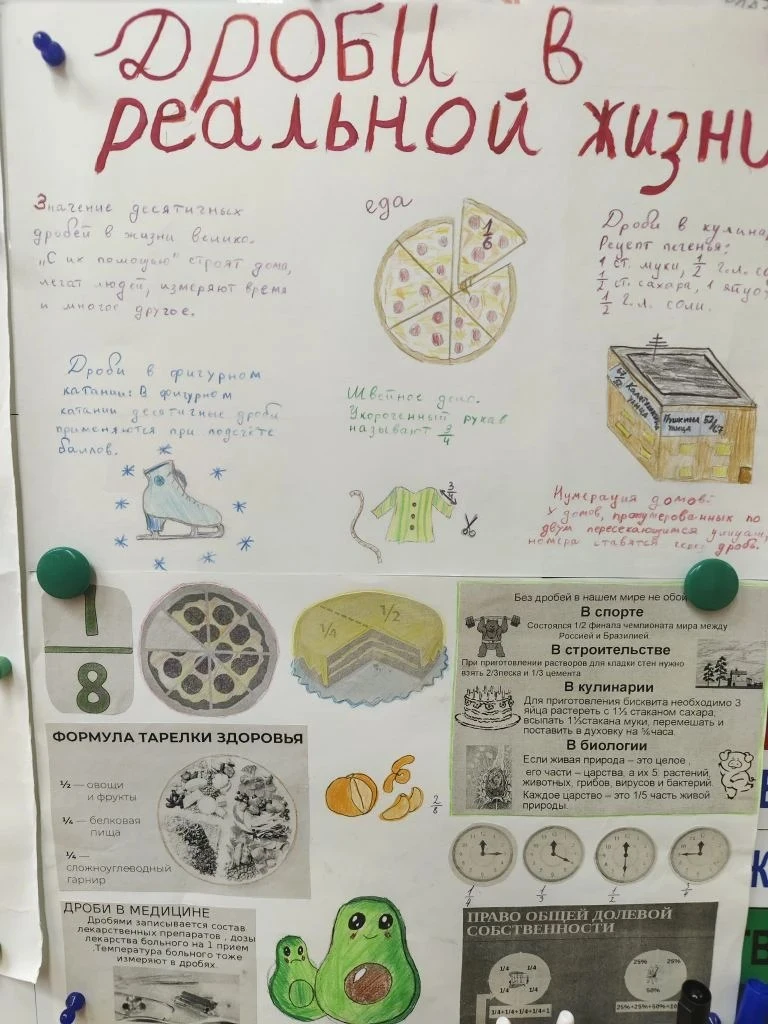 Дроби в
реальной жизни
Значение десятичных
дробей в жизни велико.
„С их помощью" строят дома,
лечат людей, измеряют время
и многое другое.
еда
1/6
Дроби в
Рецепт печенья:
1 ст. муки, 1/2 г.л.
1/2 ст. сахара, 1
1/2 г.л. соли.
Дроби в фигурном
катании: В фигурном
катании десятичные дроби
применяются при подсчёте
баллов.
Швейное дело.
Укороченный рукав
называют 3/4
3/4
улица
Пушкина 52/67
улица
Нумерация домов:
У домов, пронумерованных по
двум пересекающимся улицам,
номера ставятся через дробь.
1/8
1/4
1/2
Без дробей в нашем мире не
В спорте
Состоялся 1/2 финала чемпионата мира между
Россией и Бразилией
В строительстве
При приготовлении растворов для кладки стен нужно
взять 2/3песка и 1/3 цемента
В кулинарии
Для приготовления бисквита необходимо 3
яйца растереть с 1⅓ стаканом сахара,
всыпать 1⅓стакана муки, перемешать и
поставить в духовку на ¾часа.
В биологии
Если живая природа – это целое ,
его части – царства, а их 5: растений,
животных, грибов, вирусов и бактерий.
Каждое царство – это 1/5 часть живой
природы.
ФОРМУЛА ТАРЕЛКИ ЗДОРОВЬЯ
½ — овощи
и фрукты
¼ — белковая
пища
¼ —
сложноуглеводный
гарнир
2/8
1/4
1/3
1/2
3/4
ДРОБИ В МЕДИЦИНЕ
Дробями записывается состав
лекарственных препаратов , дозы
лекарства больного на 1 прием
.Температура больного тоже
измеряют в дробях.
ПРАВО ОБЩЕЙ ДОЛЕВОЙ
СОБСТВЕННОСТИ
1/4 1/4
1/4 1/4
1/4+1/4+1/4+1/4=1
25% 25%
50%